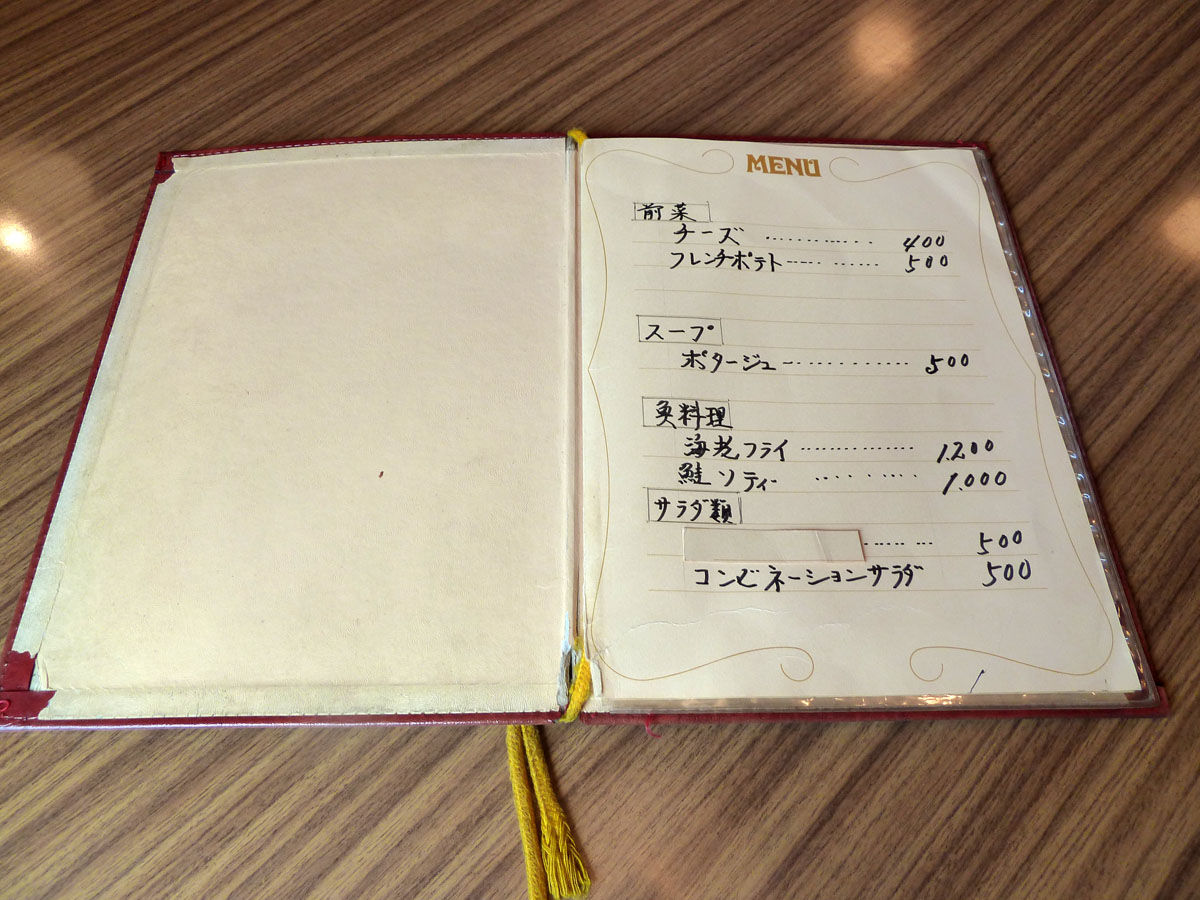 MENU
前菜
チーズ ............ 400
フレンチポテト........... 500
スープ
ポタージュ............ 500
魚料理
海老フライ............... 1,200
鮭ソティー ......... 1,000
サラダ類
......... 500
コンビネーションサラダ 500